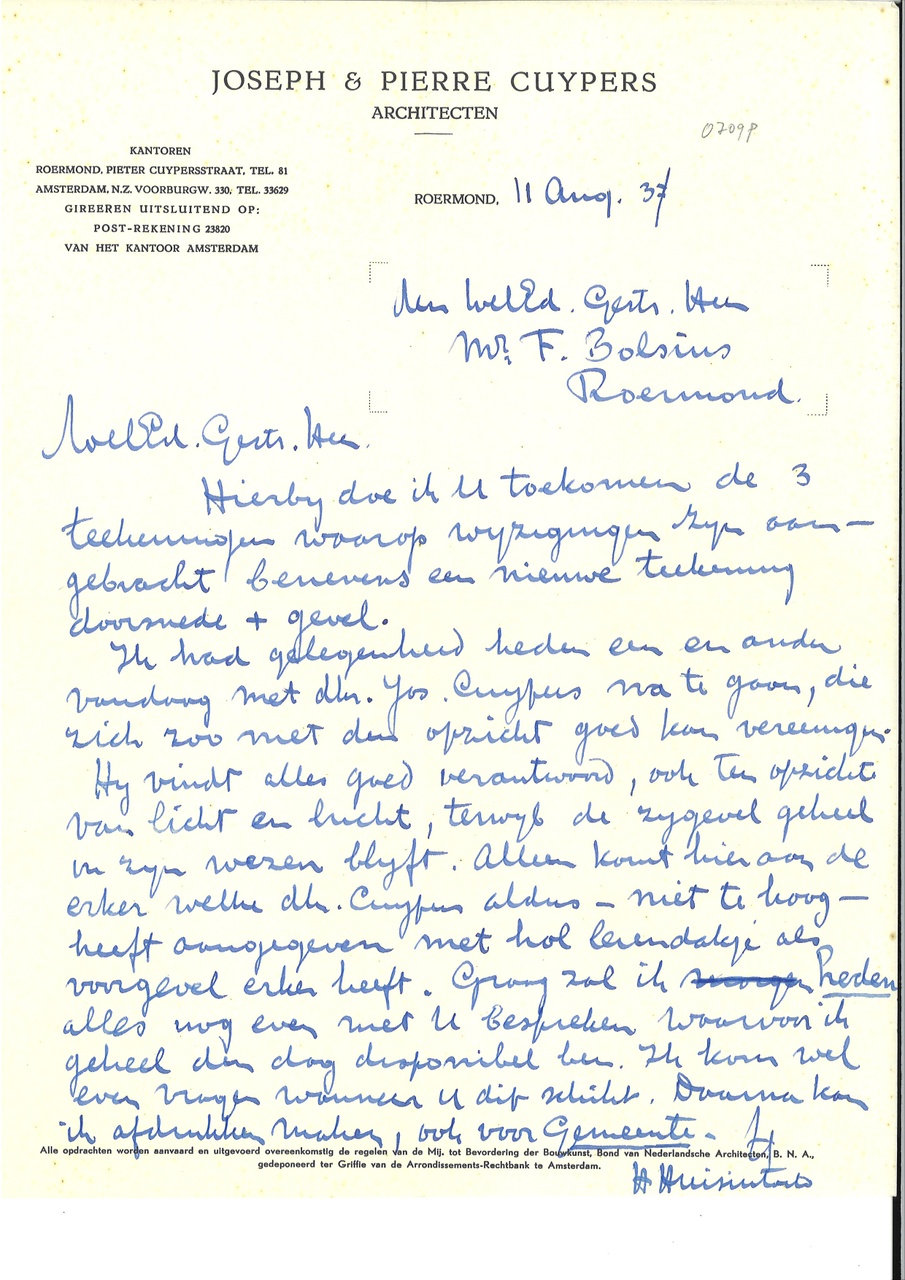 JOSEPH & PIERRE CUYPERS
ARCHITECTEN
0709P
KANTOREN
ROERMOND, PIETER CUYPERSSTRAAT, TEL. 81
AMSTERDAM, N.Z. VOORBURGW. 330, TEL. 33629
GIREEREN UITSLUITEND OP:
POST-REKENING 23820
VAN HET KANTOOR AMSTERDAM
ROERMOND, 11 Aug. 37
den WelEd. Gestr. Heer
Mr. F. Bolsius
Roermond.
WelEd. Gestr. Heer.
Hierby doe ik U toekomen de 3
teekeningen waarop wyzigingen zyn aan-
gebracht benevens een nieuwe teekening
doorsnede + gevel.
Ik had gelegenheid heden een en ander
vandaag met dhr. Jos. Cuypers na te gaan, die
zich zoo met den opzicht goed kan vereenigen.
Hy vindt alles goed verantwoord, ook ten opzichte
van licht en lucht, terwyl de zygevel geheel
in zyn wezen blyft. Alleen komt hier aan de
erker welke dhr. Cuypers aldus – niet te hoog –
heeft aangegeven met hol leiendakje als
voorgevel erker heeft. Graag zal ik morgen heden
alles nog even met U bespreken waarvoor ik
geheel den dag disponibel ben. Ik kom wel
even vragen wanneer U dit schikt. Daarna kan
ik afdrukken maken, ook voor Gemeente.
Alle opdrachten worden aanvaard en uitgevoerd overeenkomstig de regelen van de Mij. tot Bevordering der Bouwkunst, Bond van Nederlandsche Architecten, B. N. A.,
gedeponeerd ter Griffie van de Arrondissements-Rechtbank te Amsterdam.